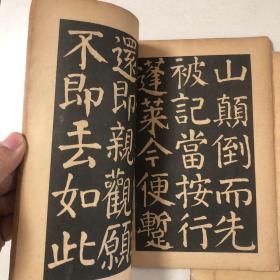 山顛倒而先
被記當按行
蓬萊今便蹔
還即親觀願
不即丟如此